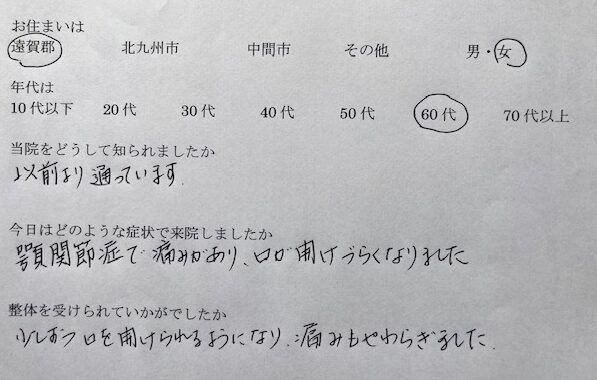 お住まいは
遠賀郡 北九州市 中間市 その他 男・女
年代は
10代以下 20代 30代 40代 50代 60代 70代以上
当院をどうして知られましたか
以前より通っています.
今日はどのような症状で来院しましたか
顎関節症で痛みがあり、口が開けづらくなりました
整体を受けられていかがでしたか
少しずつ口を開けられるようになり、痛みもやわらぎました.